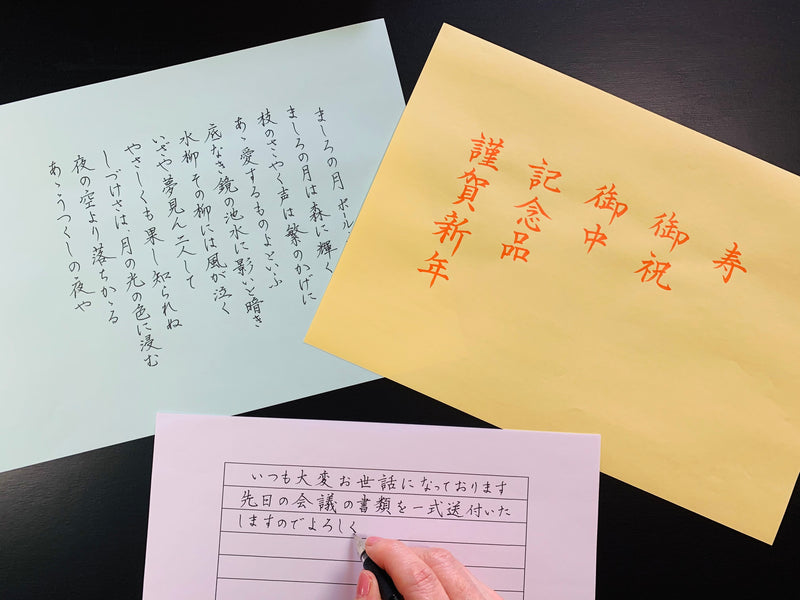 ましろの月 ポール
ましろの月は森に輝く
枝のさゝやく声は繁のかげに
あゝ愛するものよといふ
底なき鏡の池水に影いと暗き
水柳 その柳には風が泣く
いざや夢見ん二人して
やさしくも果し知られぬ
しづけさは、月の光の色に浸む
夜の空より落ちかゝる
あゝうつくしの夜や
寿
御祝
御中
記念品
謹賀新年
いつも大変お世話になっております
先日の会議の書類を一式送付いた
しますのでよろしく